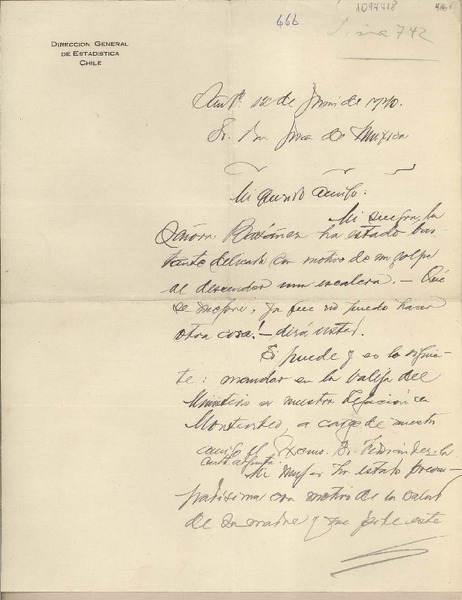 466
1094418
742
DIRECCION GENERAL
DE ESTADISTICA
CHILE
12 de Junio de 1920.
Sr. Don Juan de
Mi querido amigo:
Mi suegra, la
señora ha estado bas
tante delicada con motivo de un golpe
al descender una escalera. – Que
se mejore, ya que no puedo hacer
otra cosa! – dirá usted.
Si puede y es lo siguien
te: mandar en la valija del
Ministerio a nuestra Legación en
Montevideo, a cargo de nuestro
amigo el Excmo. Sr. Fernández, la
carta adjunta.
Mi mujer ha estado preocu-
padísima con motivo de la salud
de su madre y que pide este